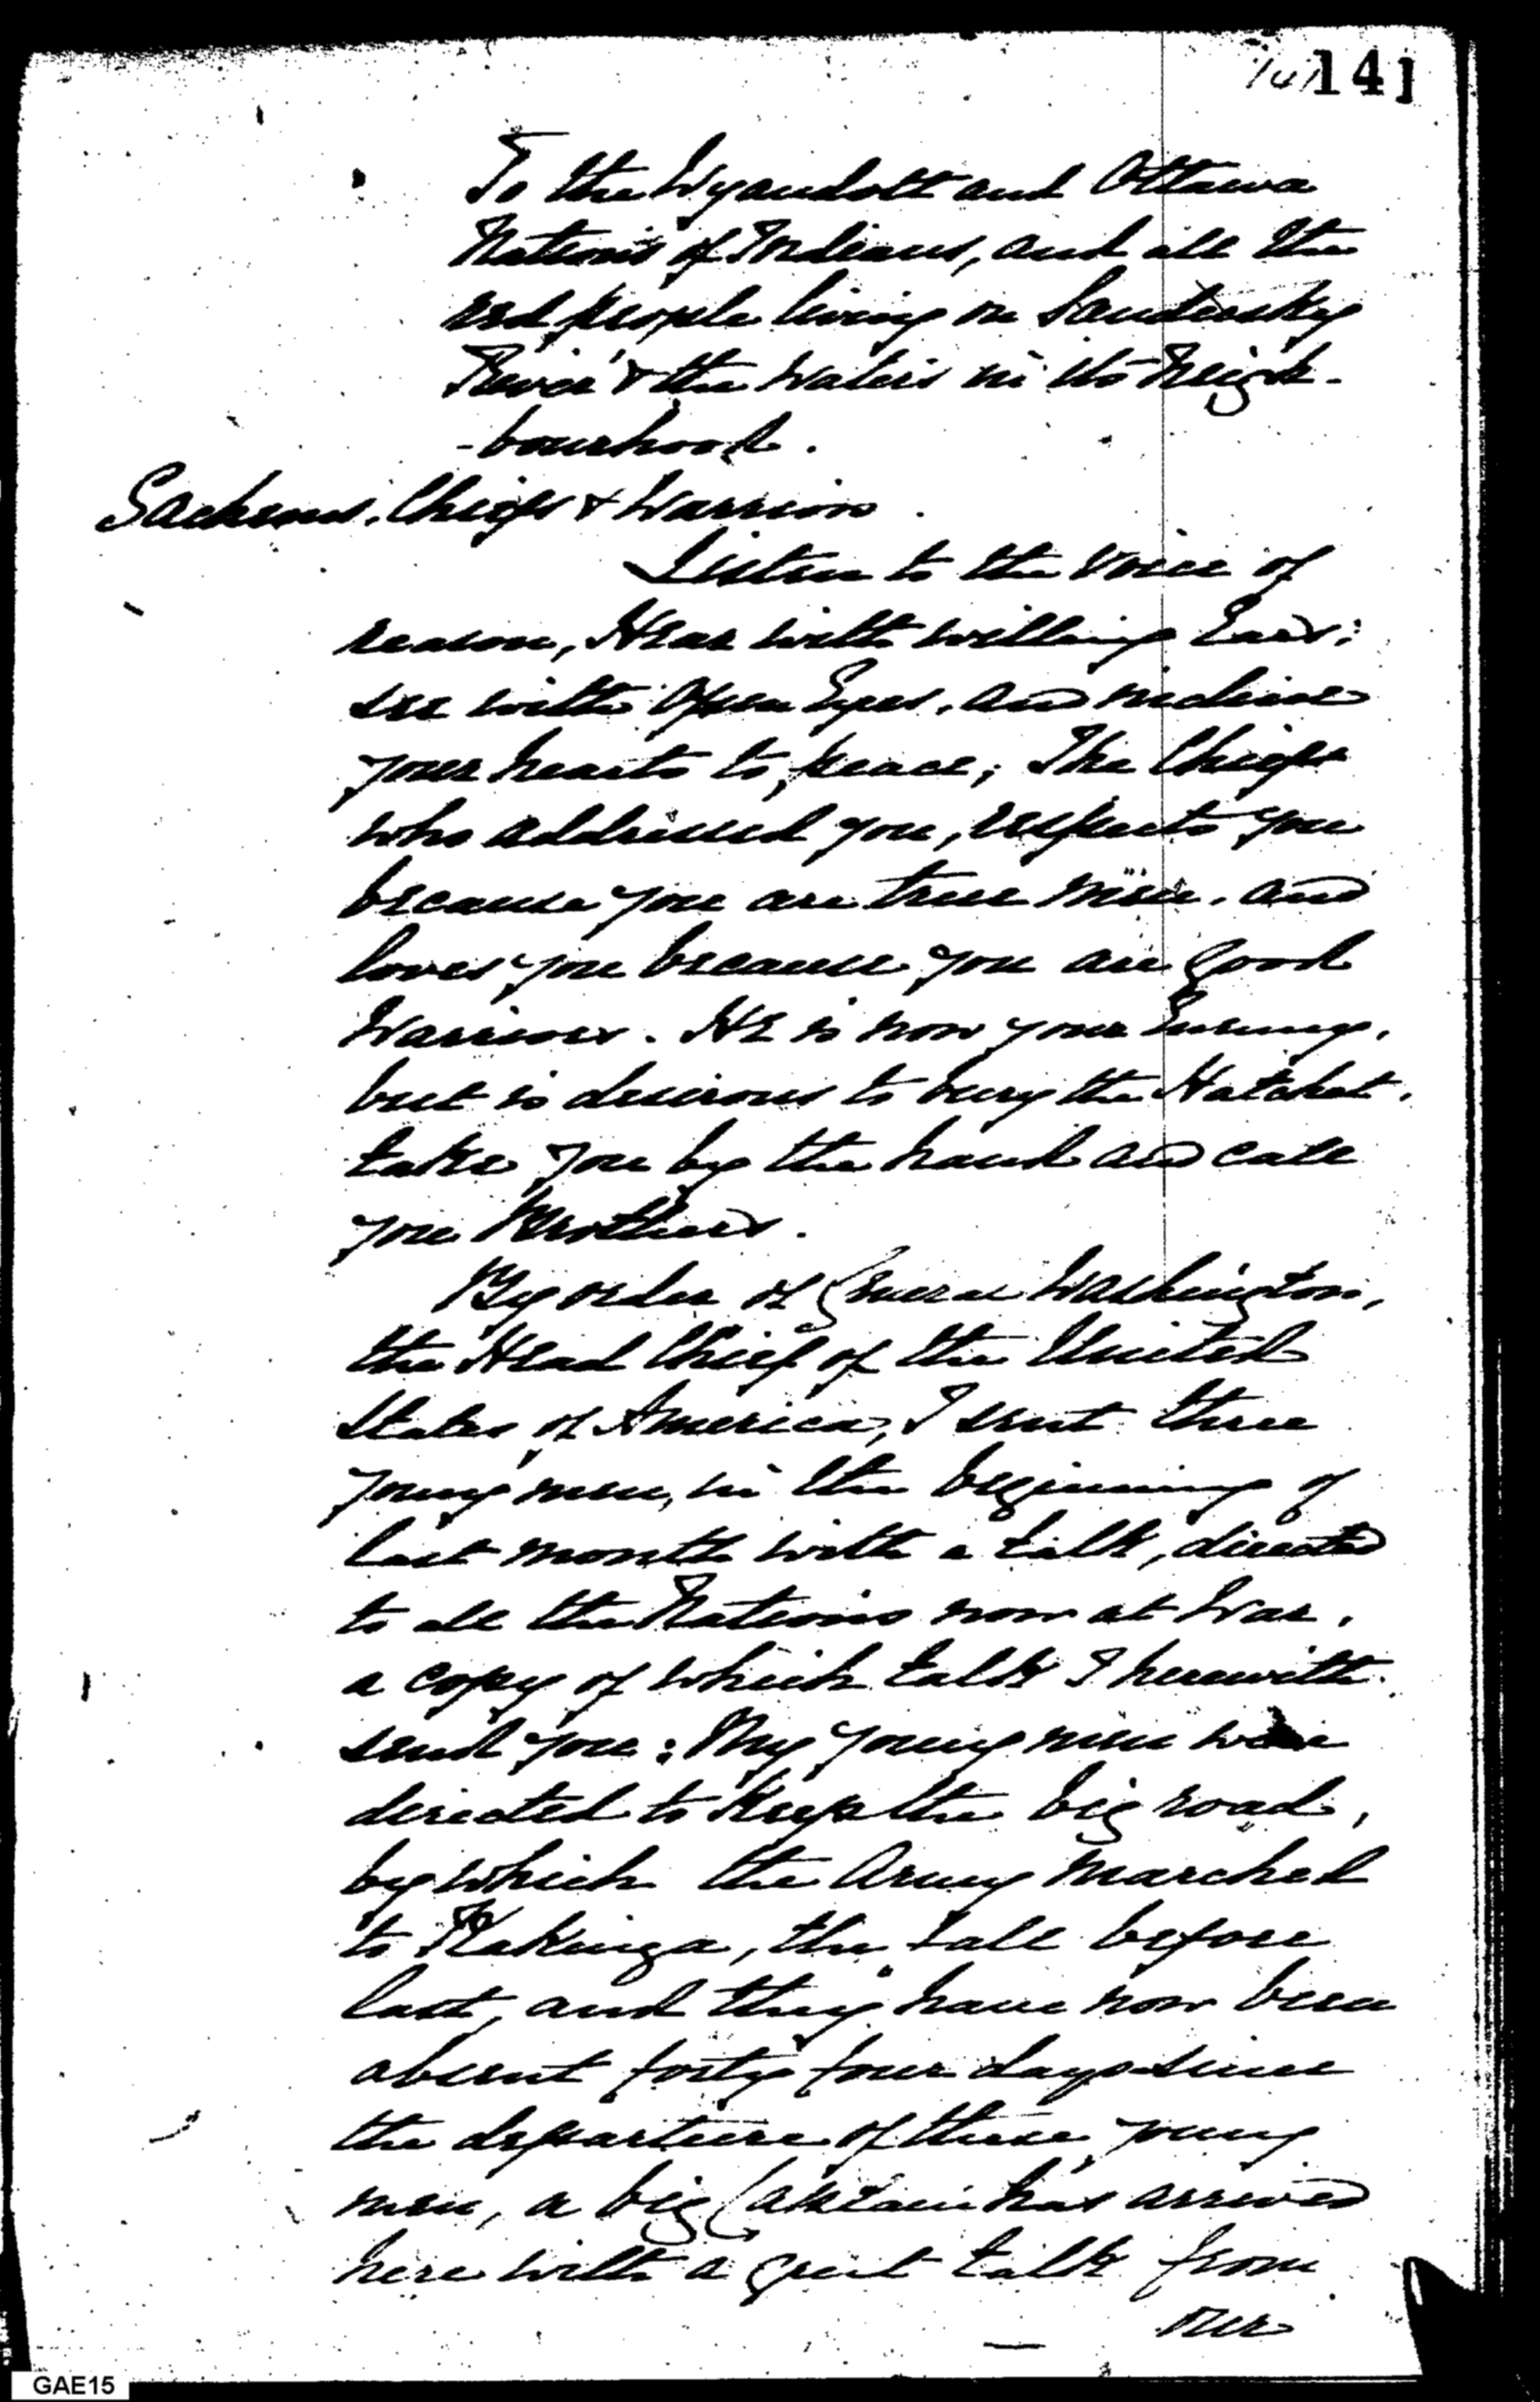 141 141
To the Wyandott and Ottawa
Nations of Indians, and all the
red people living on Sandusky
River & the Waters in its Neigh-
-bourhood.
Sachems, Chiefs & Warriors.
Listen to the voice of
reason, Hear with willing Ears;
see with Open Eyes, and incline
your hearts to peace; The Chiefs
who addressed you, respects you
because you are true men, and
loves you because you are good
Warriors. He is now your Enemy,
but is desirous to bury the Hatchet,
take you by the hand and call
you Brothers.
By order of General Washington,
the Head Chief of the United
States of America, I sent three
young men, in the beginning of
last month with a talk, directed
to all the Nations now at War,
a copy of which talk I herewith
send you: My young men were
directed to Keep the big road,
by which the Army marched
to Kakinga, the fall before
last, and they have now been
absent forty four days since
the departure of these young
men, a big Captain has arrived
here with a great talk from
our
GAE15